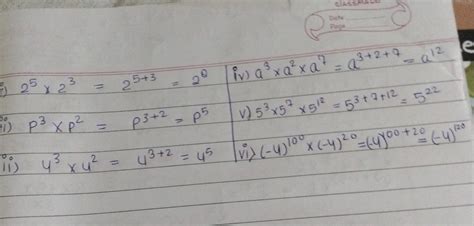 CLASSMATE
Date
Page
i) 2^5 × 2^3 = 2^{5+3} = 2^8
ii) P^3 × P^2 = P^{3+2} = P^5
iii) 4^3 × 4^2 = 4^{3+2} = 4^5
iv) a^3 × a^2 × a^7 = a^{3+2+7} = a^{12}
v) 5^3 × 5^7 × 5^{12} = 5^{3+7+12} = 5^{22}
vi) (-4)^{100} × (-4)^{20} = (-4)^{100+20} = (-4)^{120}